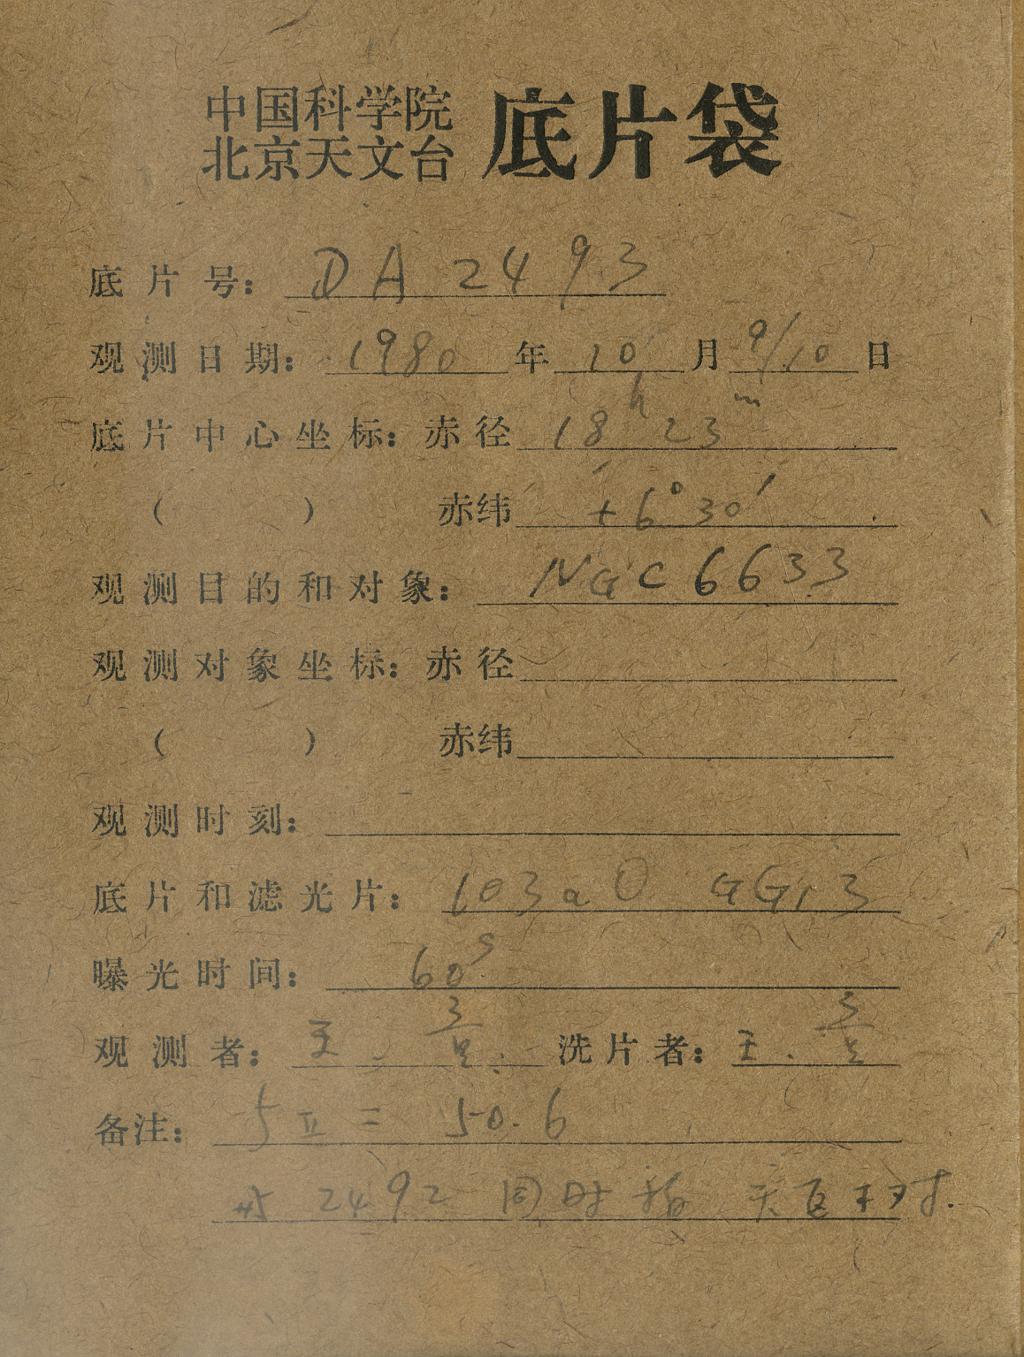 中国科学院
北京天文台 底片袋
底片号: DA 2493
观测日期: 1980 年 10 月 9/10 日
底片中心坐标: 赤径 18h 23m
( ) 赤纬 +6° 30′
观测目的和对象: NGC 6633
观测对象坐标: 赤径
( ) 赤纬
观测时刻:
底片和滤光片: 103aO GG13
曝光时间: 60s
观测者: 王. 洗片者: 王.
备注: = 50.6
2492 同时 天区